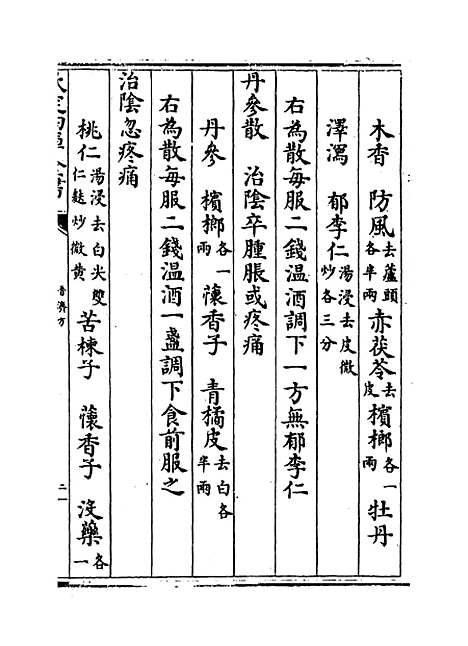 木香　防風去蘆頭各半兩赤茯苓去皮檳榔各一兩牡丹
澤瀉　郁李仁湯浸去皮微炒各三分
右為散每服二錢温酒調下一方無郁李仁
丹參散　治陰卒腫脹或疼痛
丹參　檳榔各一兩蘹香子　青橘皮去白各半兩
右為散每服二錢温酒一盞調下食前服之
治陰忽疼痛
桃仁湯浸去白尖雙仁麩炒微黄苦楝子　蘹香子　沒藥各一
普濟方
二一